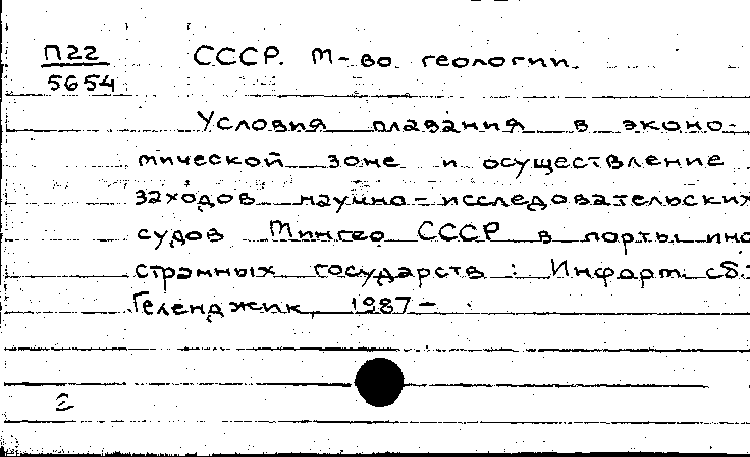 П22 СССР. М-во геологии.
5654
Условия плавания в эконо-
мической зоне и осуществление
заходов научно-исследовательских
судов Мингео СССР в порты ино
странных государств : Информ. сб.-
Геленджик, 1987-
2